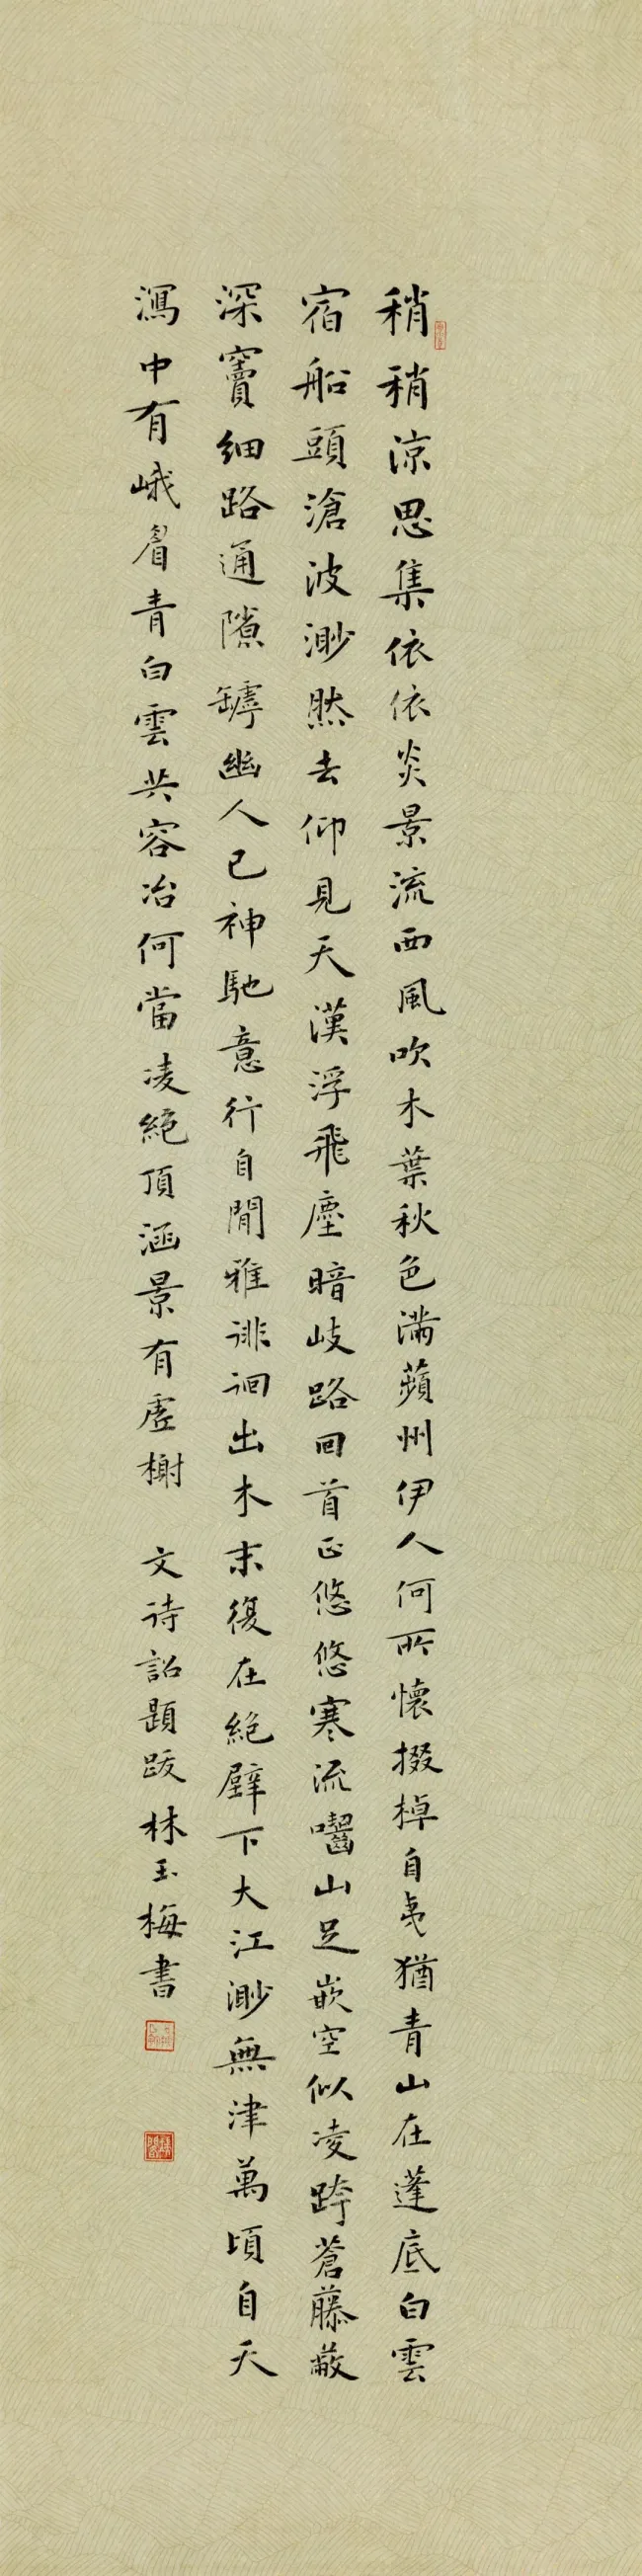 稍稍涼思集依依炎景流西風吹木葉秋色滿蘋州伊人何所懷掇棹自夷猶青山在蓬底白雲
宿船頭滄波渺然去仰見天漢浮飛塵暗岐路回首正悠悠寒流嚙山足嵌空似凌跨蒼藤蔽
深竇細路通隙罅幽人已神馳意行自閒雅徘徊出木末復在絕壁下大江渺無津萬頃自天
瀉中有峨眉青白雲共容冶何當凌絕頂涵景有虛榭
文待詔題跋林玉梅書